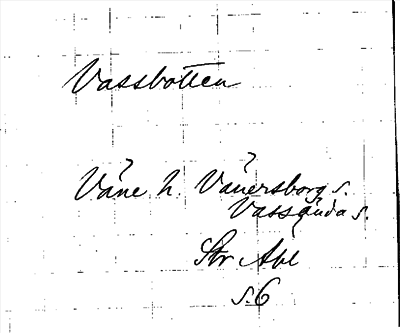 Vassbotten
Väne h. Vänersborg s.
Vassända s.
Str Abl
s. 6